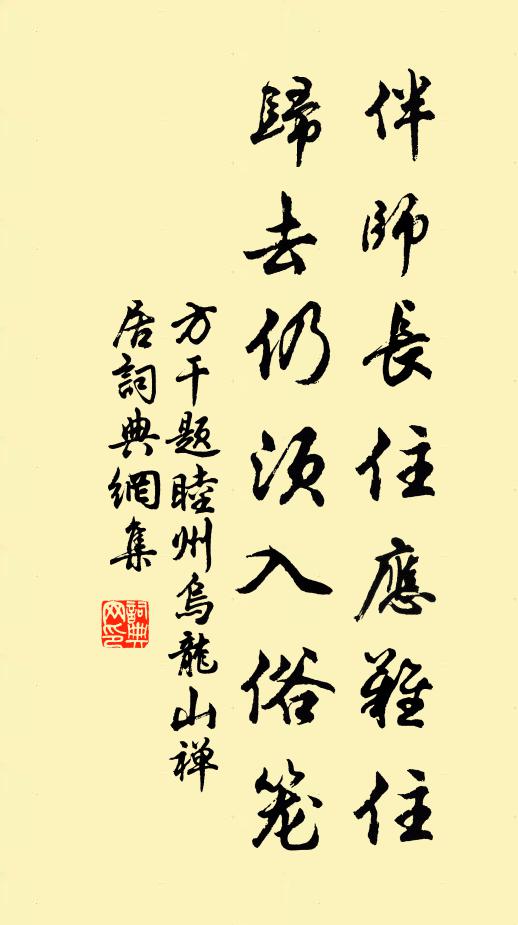 伴師長住應難住
歸去仍須入俗笼
方干題睦州烏龍山禅
居詞典網集
詞典
网印